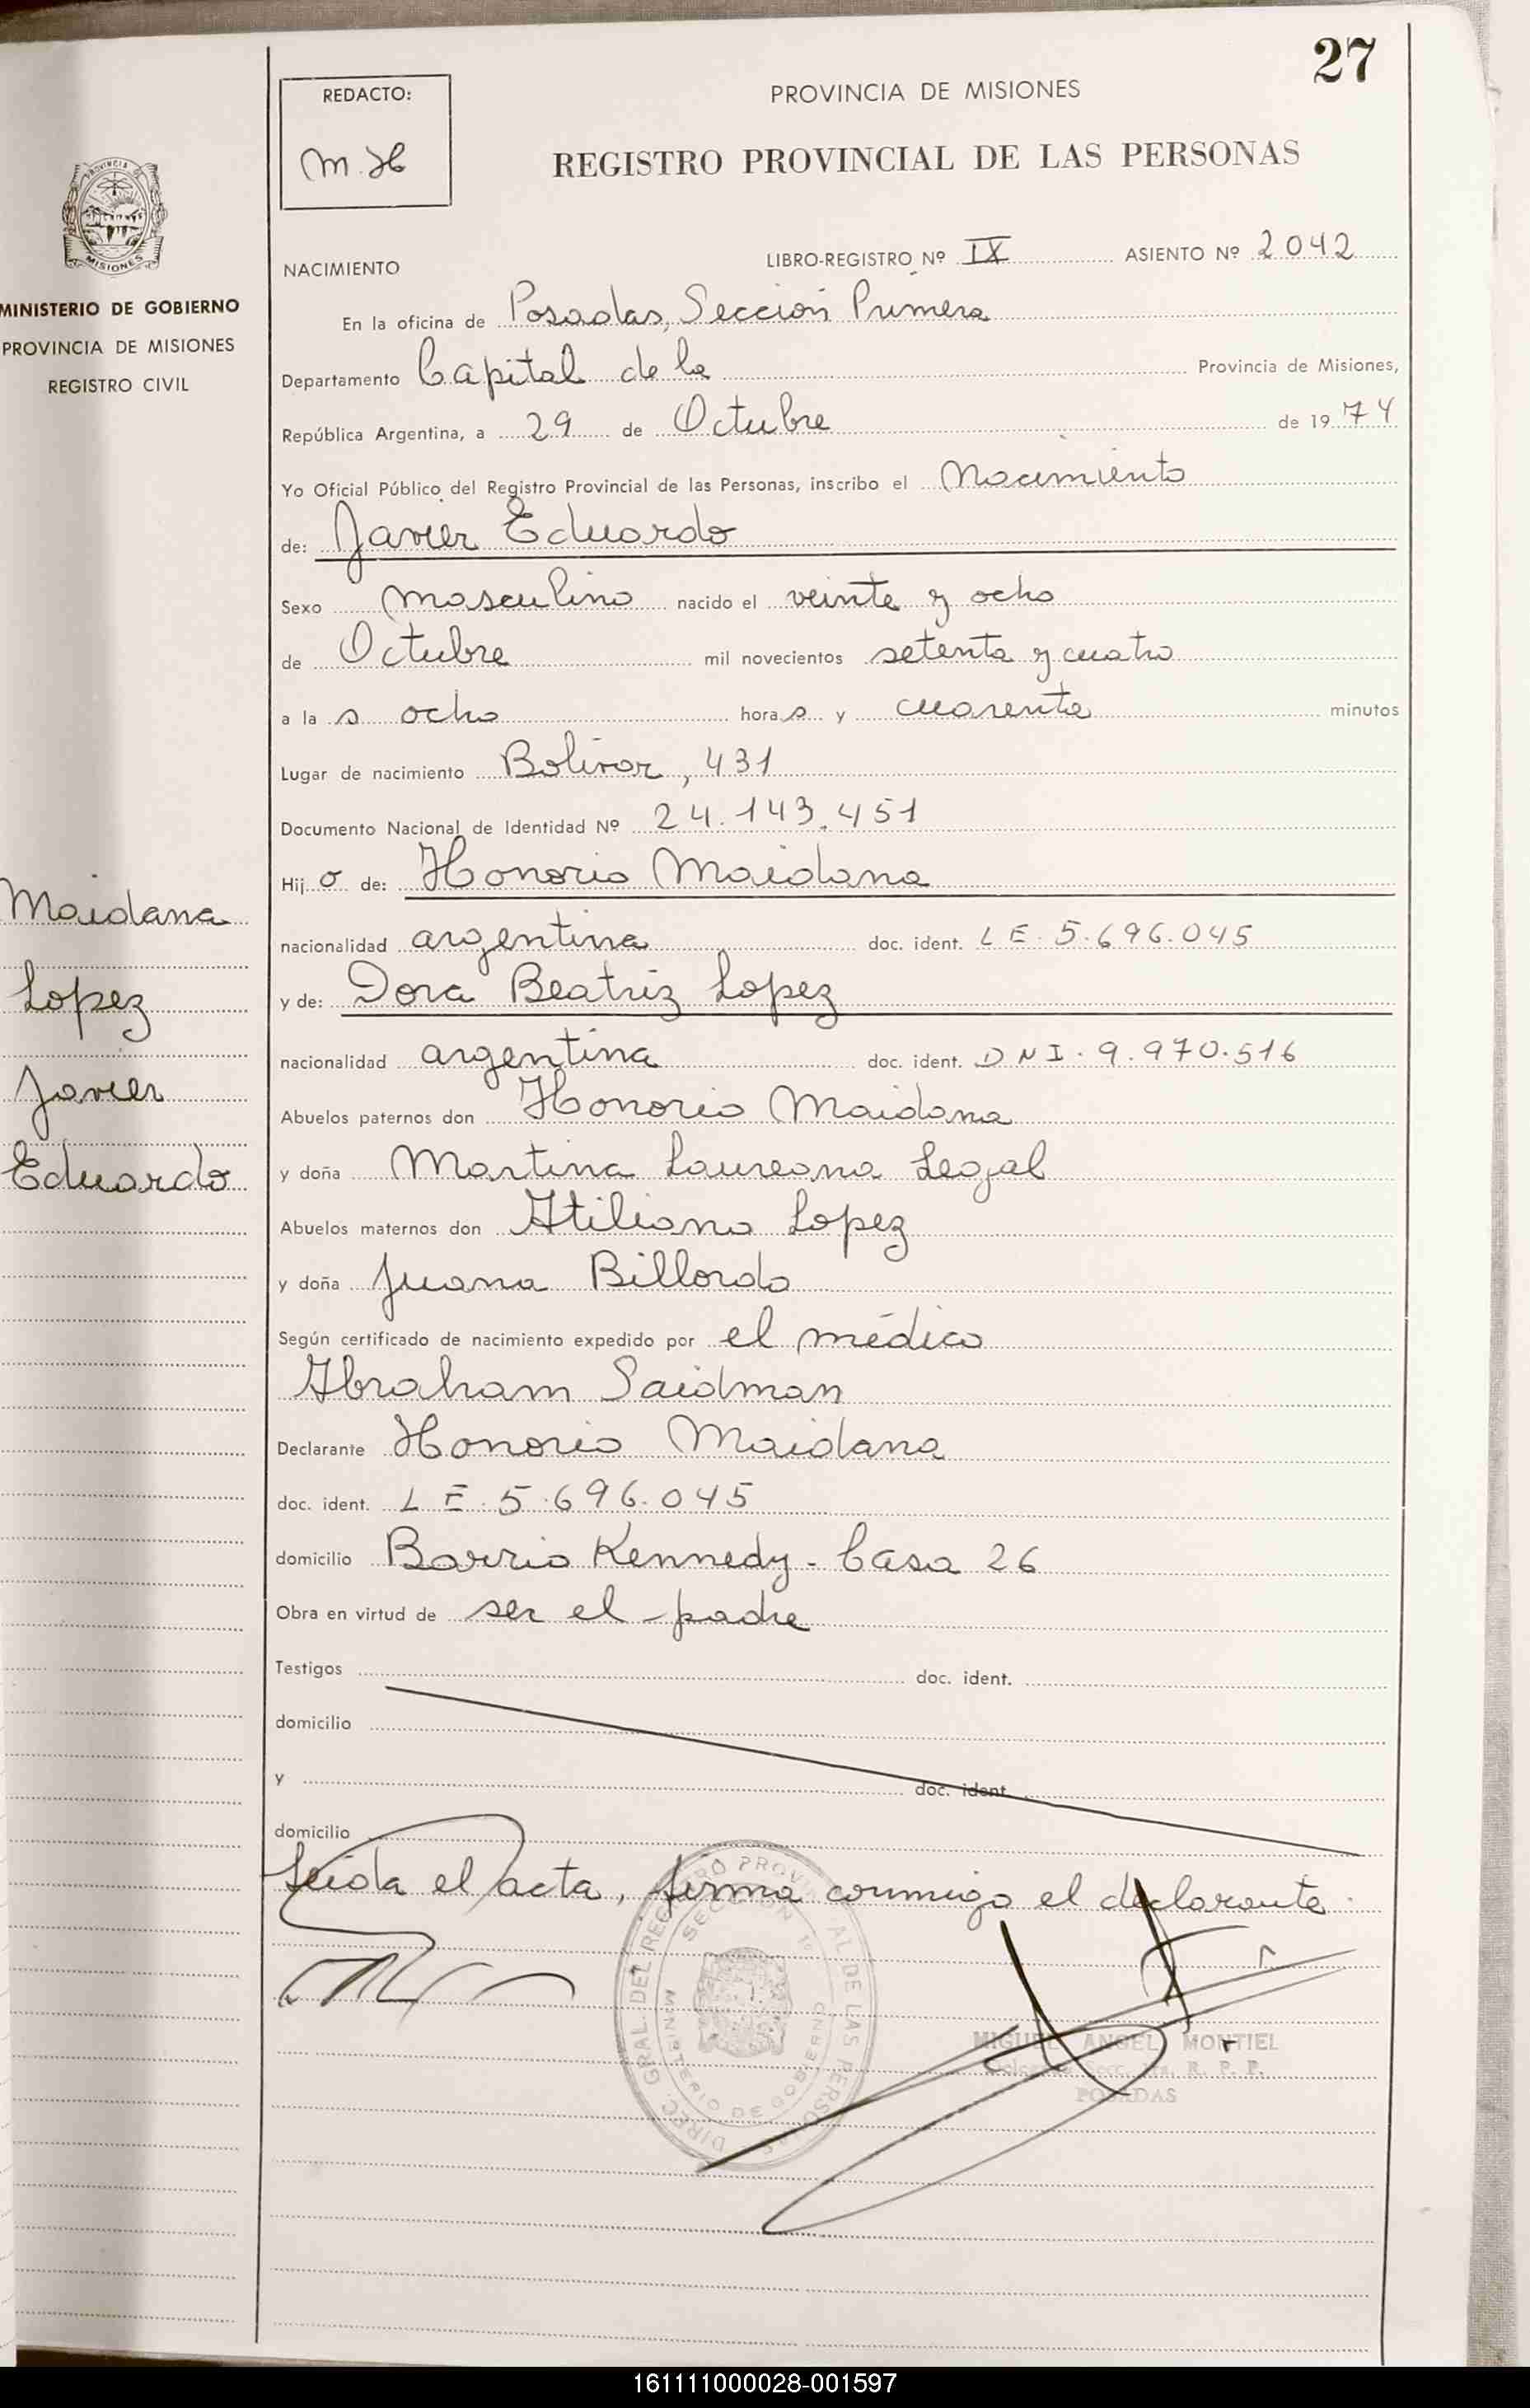 27
REDACTO:
M.H
PROVINCIA DE MISIONES
REGISTRO PROVINCIAL DE LAS PERSONAS
PROVINCIA
MISIONES
MINISTERIO DE GOBIERNO
PROVINCIA DE MISIONES
REGISTRO CIVIL
NACIMIENTO
LIBRO-REGISTRO Nº IX ASIENTO Nº 2042
En la oficina de Posadas, Sección Primera
Departamento Capital de la Provincia de Misiones,
República Argentina, a 29 de Octubre de 1974
Yo Oficial Público del Registro Provincial de las Personas, inscribo el Nacimiento
de: Javier Eduardo
Sexo masculino nacido el veinte y ocho
de Octubre mil novecientos setenta y cuatro
a la s ocho hora s y cuarenta minutos
Lugar de nacimiento Bolivar, 431
Documento Nacional de Identidad Nº 24.143.451
Hij o de: Honorio Maidana
nacionalidad argentina doc. ident. L E. 5.696.045
y de: Dora Beatriz Lopez
nacionalidad argentina doc. ident. D N I. 9.970.516
Abuelos paternos don Honorio Maidana
y doña Martina Laureana Legal
Abuelos maternos don Atiliano Lopez
y doña Juana Billordo
Según certificado de nacimiento expedido por el médico
Abraham Saidman
Declarante Honorio Maidana
doc. ident. L E. 5.696.045
domicilio Barrio Kennedy - Casa 26
Obra en virtud de ser el padre
Testigos doc. ident.
domicilio
y doc. ident.
domicilio
Leida el acta, firma conmigo el declarante.
Maidana
Lopez
Javier
Eduardo
DIREC. GRAL. DEL REGISTRO PROVINCIAL DE LAS PERSONAS
SECCION 1º
MINISTERIO DE GOBIERNO
MIGUEL ANGEL MONTIEL
R. P. P.
POSADAS
161111000028-001597